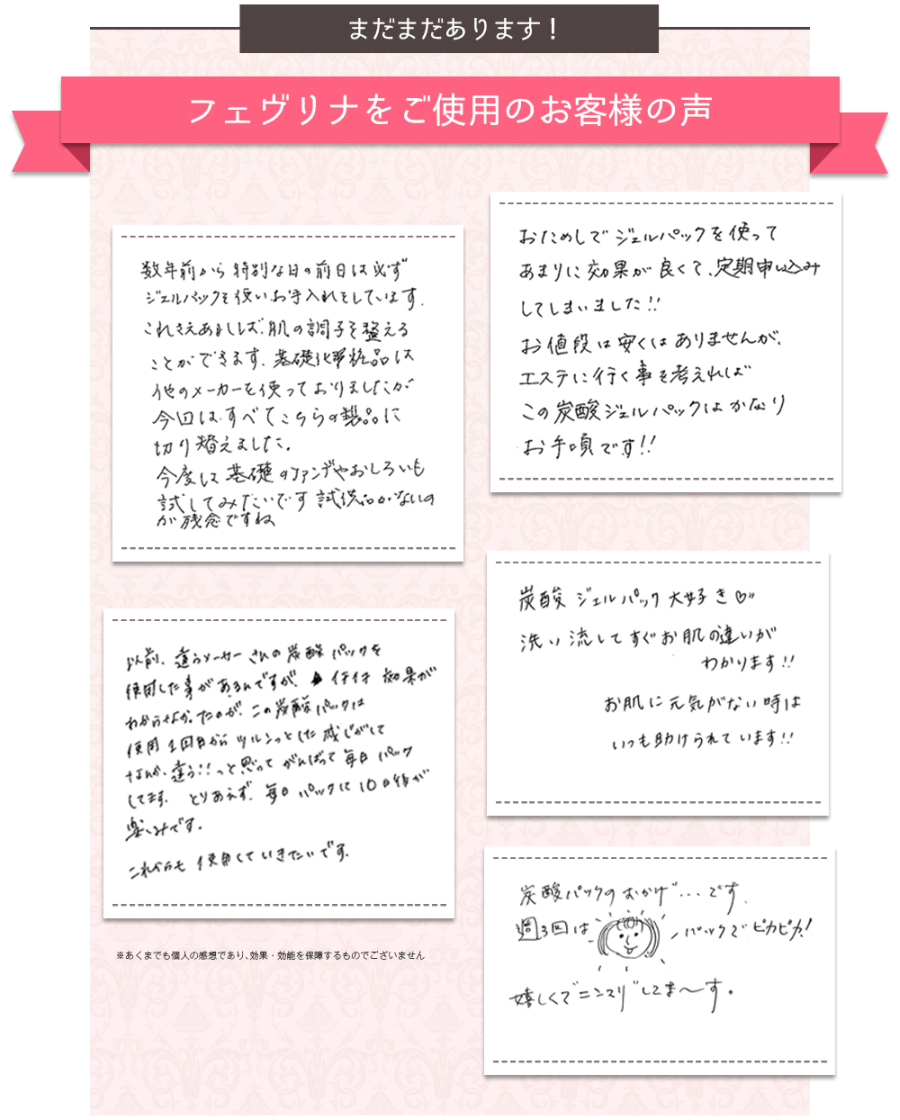 まだまだあります！
フェヴリナをご使用のお客様の声
数年前から特別な日の前日は必ず
ジェルパックを使いお手入れをしています。
これさえあれば、肌の調子を整える
ことができます。基礎化粧品は
他のメーカーを使っておりましたが
今回はすべてこちらの製品に
切り替えました。
今度は基礎のファンデやおしろいも
試してみたいです 試供品がないの
が残念ですね
おためしでジェルパックを使って
あまりに効果が良くて、定期申し込み
してしまいました!!
お値段は安くはありませんが、
エステに行く事を考えれば
この炭酸ジェルパックはかなり
お手頃です!!
以前、違うメーカーさんの炭酸パックを
使用した事があるんですが、イマイチ効果が
わからなかったのが、この炭酸パックは
使用1回目からツルンっとした感じがして
なんか違う!!っと思ってがんばって毎日パック
してます。とりあえず、毎日パックして10日後が
楽しみです。
これからも使用していきたいです。
炭酸ジェルパック大好き♡〃
洗い流してすぐお肌の違いが
わかります!!
お肌に元気がない時は
いつも助けられています!!
炭酸パックのおかげ…です。
週3回はパックでピカピカ!
嬉しくてニンマリしてま〜す。
※あくまでも個人の感想であり、効果・効能を保障するものでございません